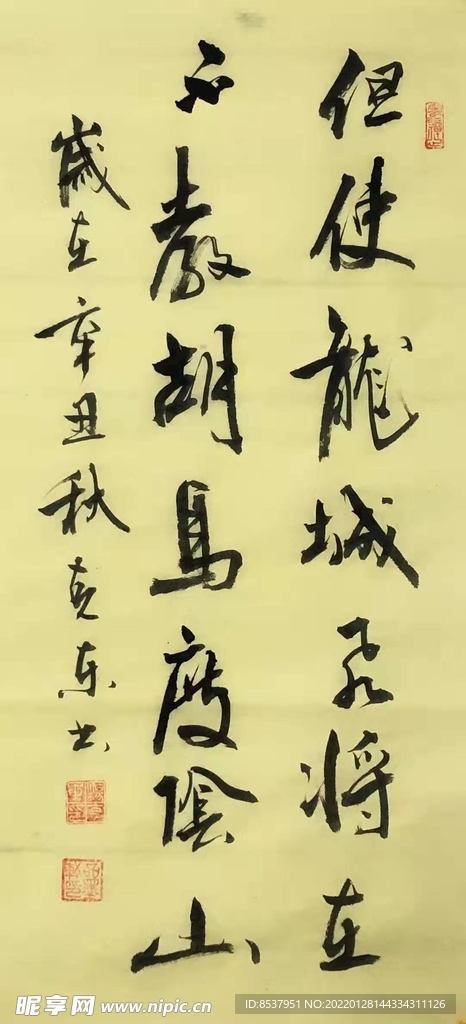 但使龍城飛將在
不教胡馬度陰山
歲在辛丑秋克東书
昵享网 www.nipic.cn
ID:8537951 NO:20220128144334311126